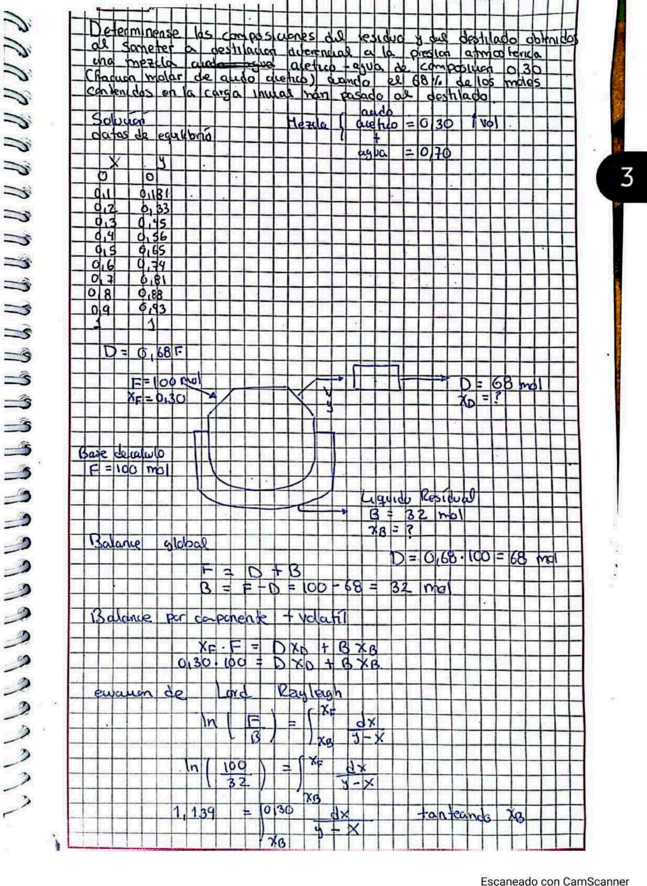 Determinense las composiciones del residuo y del destilado obtenidos
al someter a destilacion diferencial a la presion atmosferica
una mezcla acido acetico - agua de composicion 0,30
(fraccion molar de acido acetico) cuando el 68% de los moles
contenidos en la carga inicial han pasado al destilado.
Solución
datos de equilibrio
Mezcla { acido acetico = 0,30 ↑ vol
+
agua = 0,70
X y
0 0
0,1 0,181
0,2 0,33
0,3 0,45
0,4 0,56
0,5 0,65
0,6 0,74
0,7 0,81
0,8 0,88
0,9 0,93
1 1
3
D = 0,68F
F = 100 mol
XF = 0,30
V
y
D = 68 mol
XD = ?
Base de calculo
F = 100 mol
Liquido Residual
B = 32 mol
XB = ?
Balance global
D = 0,68 · 100 = 68 mol
F = D + B
B = F - D = 100 - 68 = 32 mol
Balance por componente + volatil
XF · F = D XD + B XB
0,30 · 100 = D XD + B XB
ecuacion de Lord Rayleigh
ln (F/B) = ∫XB^XF dx/(y-x)
ln (100/32) = ∫XB^XF dx/(y-x)
1,139 = ∫XB^0,30 dx/(y-x) tanteando XB
Escaneado con CamScanner